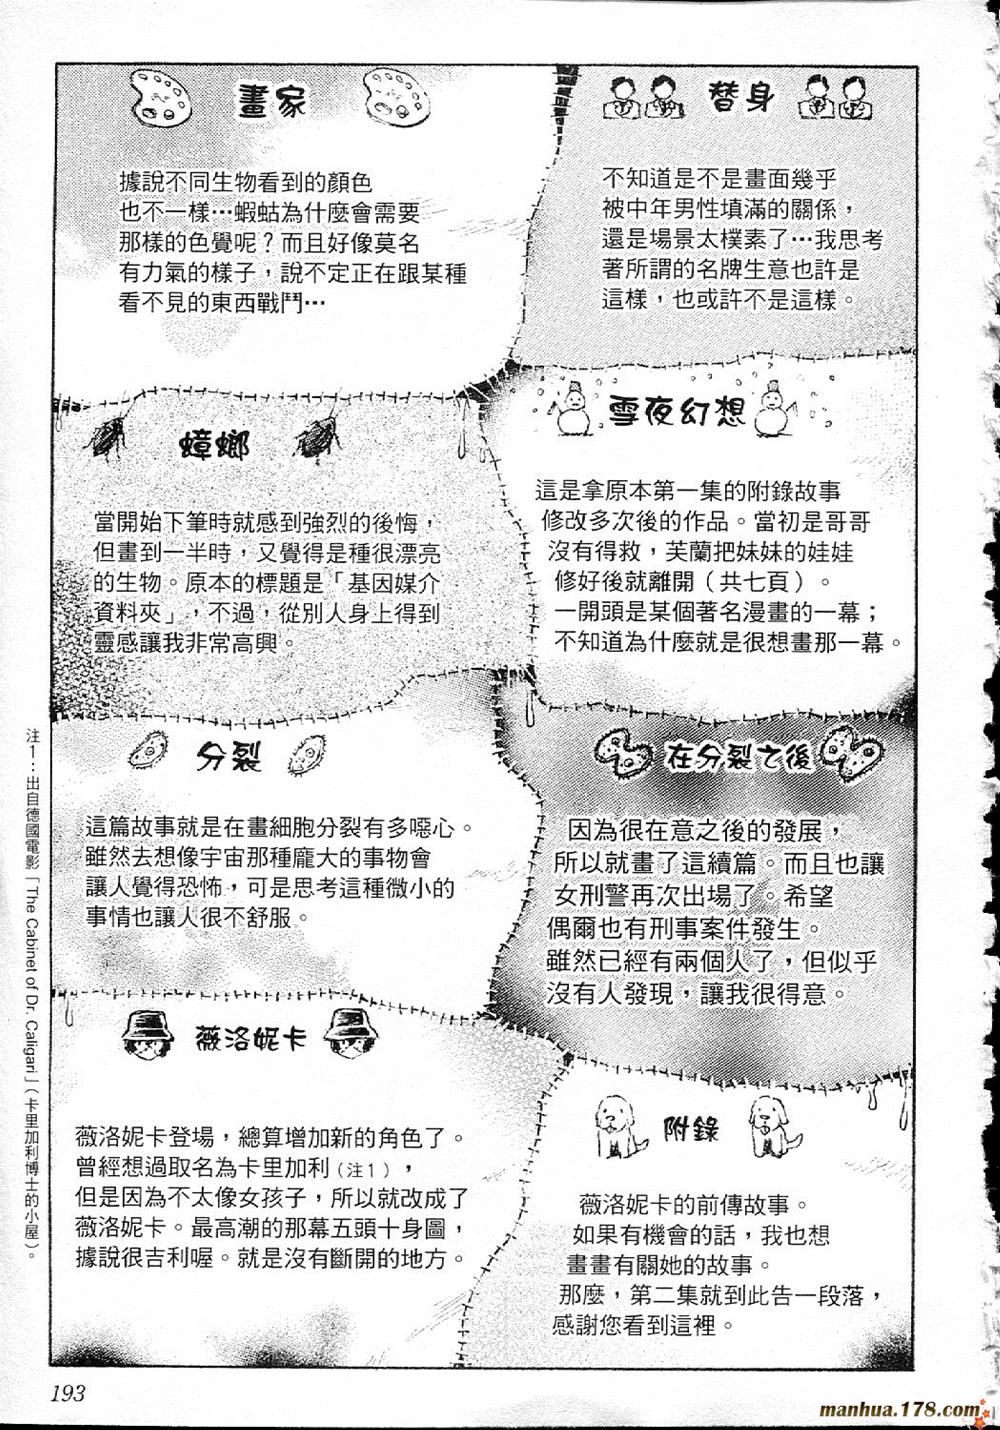 畫家
據說不同生物看到的顏色
也不一樣…蝦蛄為什麼會需要
那樣的色覺呢？而且好像莫名
有力氣的樣子，說不定正在跟某種
看不見的東西戰鬥…
替身
不知道是不是畫面幾乎
被中年男性填滿的關係，
還是場景太樸素了…我思考
著所謂的名牌生意也許是
這樣，也或許不是這樣。
蟑螂
當開始下筆時就感到強烈的後悔，
但畫到一半時，又覺得是種很漂亮
的生物。原本的標題是「基因媒介
資料夾」，不過，從別人身上得到
靈感讓我非常高興。
雪夜幻想
這是拿原本第一集的附錄故事
修改多次後的作品。當初是哥哥
沒有得救，芙蘭把妹妹的娃娃
修好後就離開（共七頁）。
一開頭是某個著名漫畫的一幕；
不知道為什麼就是很想畫那一幕。
分裂
這篇故事就是在畫細胞分裂有多噁心。
雖然去想像宇宙那種龐大的事物會
讓人覺得恐怖，可是思考這種微小的
事情也讓人很不舒服。
在分裂之後
因為很在意之後的發展，
所以就畫了這續篇。而且也讓
女刑警再次出場了。希望
偶爾也有刑事案件發生。
雖然已經有兩個人了，但似乎
沒有人發現，讓我很得意。
薇洛妮卡
薇洛妮卡登場，總算增加新的角色了。
曾經想過取名為卡里加利（注1），
但是因為不太像女孩子，所以就改成了
薇洛妮卡。最高潮的那幕五頭十身圖，
據說很吉利喔。就是沒有斷開的地方。
附錄
薇洛妮卡的前傳故事。
如果有機會的話，我也想
畫畫有關她的故事。
那麼，第二集就到此告一段落，
感謝您看到這裡。
注1：出自德國電影「The Cabinet of Dr. Caligari」（卡里加利博士的小屋）。
193
manhua.178.com